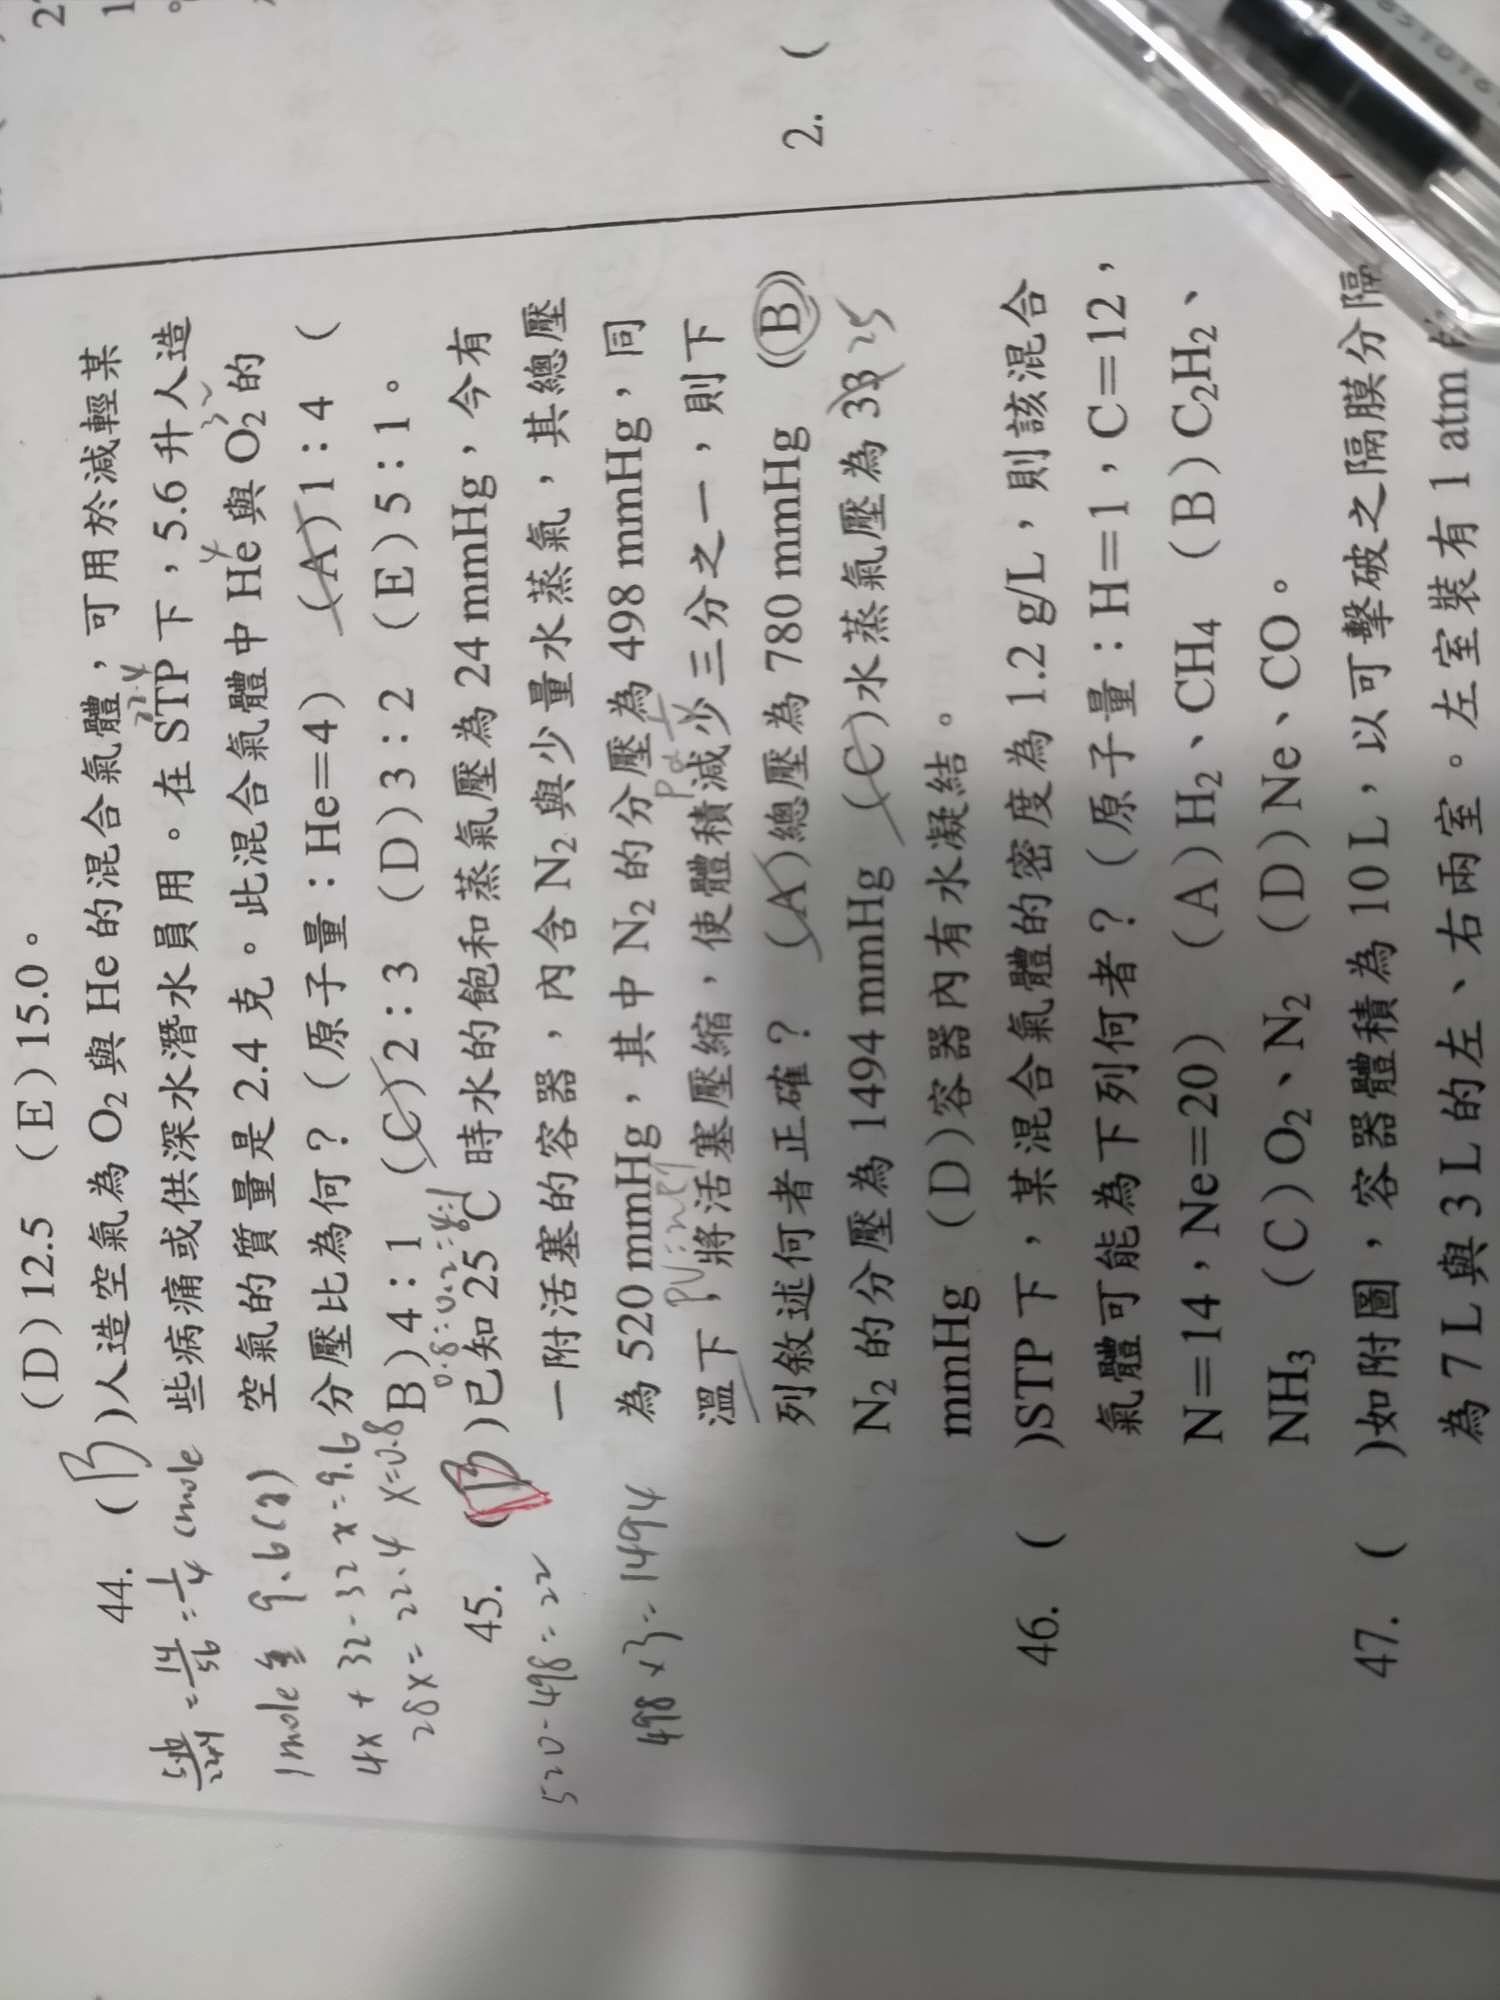 (D)12.5 (E)15.0。
44. (B)人造空氣為 O2 與 He 的混合氣體，可用於減輕某
些病痛或供深水潛水員用。在 STP 下，5.6 升人造
空氣的質量是 2.4 克。此混合氣體中 He 與 O2 的
分壓比為何？（原子量：He＝4） (A)1：4 (
B)4：1 (C)2：3 (D)3：2 (E)5：1。
1mole 重 9.6(g)
4x + 32-32x=9.6
28x=22.4 x=0.8
0.8:0.2=4:1
22.4
45. (B)已知 25℃ 時水的飽和蒸氣壓為 24 mmHg，今有
一附活塞的容器，內含 N2 與少量水蒸氣，其總壓
為 520 mmHg，其中 N2 的分壓為 498 mmHg，同
溫下，將活塞壓縮，使體積減少三分之一，則下
列敘述何者正確？ (A)總壓為 780 mmHg (B)
N2 的分壓為 1494 mmHg (C)水蒸氣壓為 33 25
mmHg (D)容器內有水凝結。
520-498=22
498×3=1494
46. ( )STP 下，某混合氣體的密度為 1.2 g/L，則該混合
氣體可能為下列何者？（原子量：H＝1，C＝12，
N＝14，Ne＝20） (A)H2、CH4 (B)C2H2、
NH3 (C)O2、N2 (D)Ne、CO。
47. ( )如附圖，容器體積為 10 L，以可擊破之隔膜分隔
為 7 L 與 3 L 的左、右兩室。左室裝有 1 atm
2. (